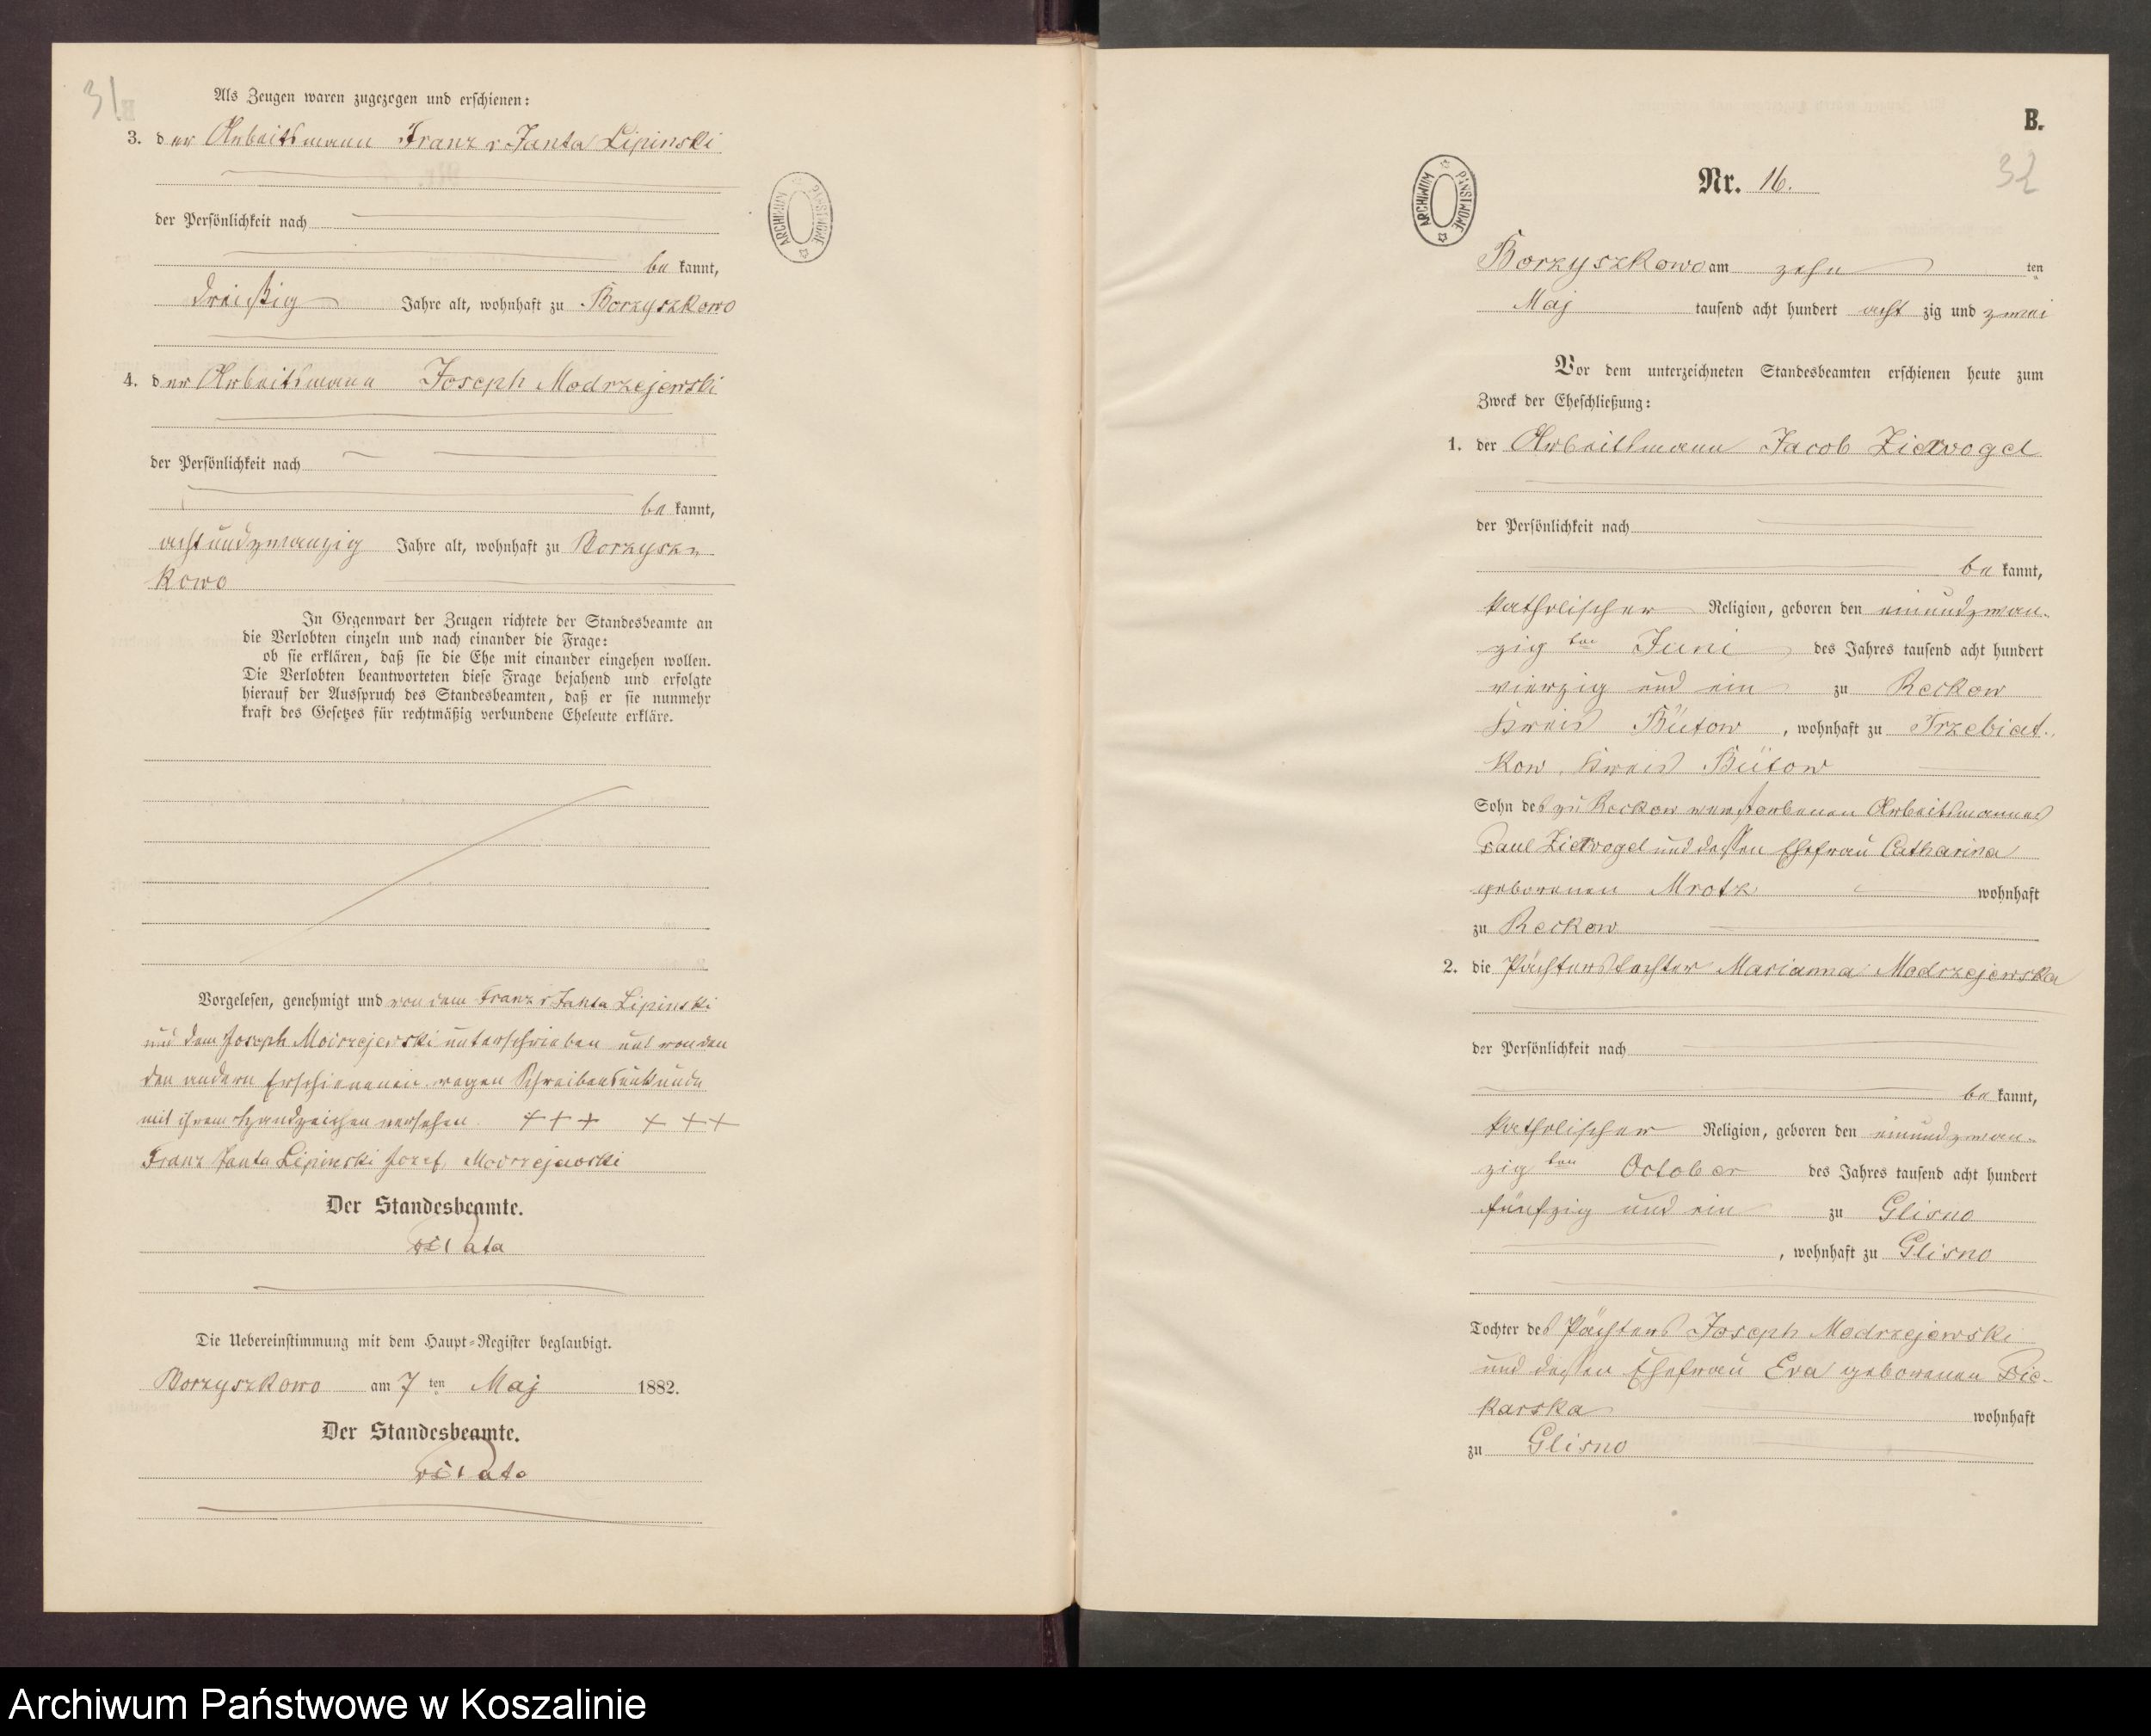 31
Als Zeugen waren zugezogen und erschienen:
3. der Arbeitsmann Franz v Janta Lipinski
der Persönlichkeit nach
be kannt,
dreißig Jahre alt, wohnhaft zu Borzyszkowo
4. der Arbeitsmann Joseph Modrzejewski
der Persönlichkeit nach
be kannt,
achtundzwanzig Jahre alt, wohnhaft zu Borzysz-
kowo
In Gegenwart der Zeugen richtete der Standesbeamte an
die Verlobten einzeln und nach einander die Frage:
ob sie erklären, daß sie die Ehe mit einander eingehen wollen.
Die Verlobten beantworteten diese Frage bejahend und erfolgte
hierauf der Ausspruch des Standesbeamten, daß er sie nunmehr
kraft des Gesetzes für rechtmäßig verbundene Eheleute erkläre.
Vorgelesen, genehmigt und von dem Franz v Janta Lipinski
und dem Joseph Modrzejewski unterschrieben und von den
den andern Erschienenen wegen Schreibensunkunde
mit ihrem Handzeichen versehen. +++ +++
Franz Janta Lipinski Jozef Modrzejewski
Der Standesbeamte.
Die Uebereinstimmung mit dem Haupt-Register beglaubigt.
Borzyszkowo am 7 ten Maj 1882.
Der Standesbeamte.
ARCHIWUM PAŃSTWOWE
B.
32
Nr. 16.
ARCHIWUM PAŃSTWOWE
Borzyszkowo am zehn ten
Maj tausend acht hundert acht zig und zwei
Vor dem unterzeichneten Standesbeamten erschienen heute zum
Zweck der Eheschließung:
1. der Arbeitsmann Jacob Ziervogel
der Persönlichkeit nach
be kannt,
katholischer Religion, geboren den einundzwan-
zig ten Juni des Jahres tausend acht hundert
vierzig und ein zu Reckow
Kreis Bütow, wohnhaft zu Trzebiat-
kow, Kreis Bütow
Sohn des zu Reckow verstorbenen Arbeitsmannes
Paul Ziervogel und dessen Ehefrau Catharina
geborenen Mrotz wohnhaft
zu Reckow
2. die Pächterstochter Marianna Modrzejewska
der Persönlichkeit nach
be kannt,
katholischer Religion, geboren den einundzwan-
zig ten October des Jahres tausend acht hundert
fünfzig und ein zu Glisno
, wohnhaft zu Glisno
Tochter des Pächters Joseph Modrzejewski
und dessen Ehefrau Eva geborenen Pie-
karska wohnhaft
zu Glisno
Archiwum Państwowe w Koszalinie